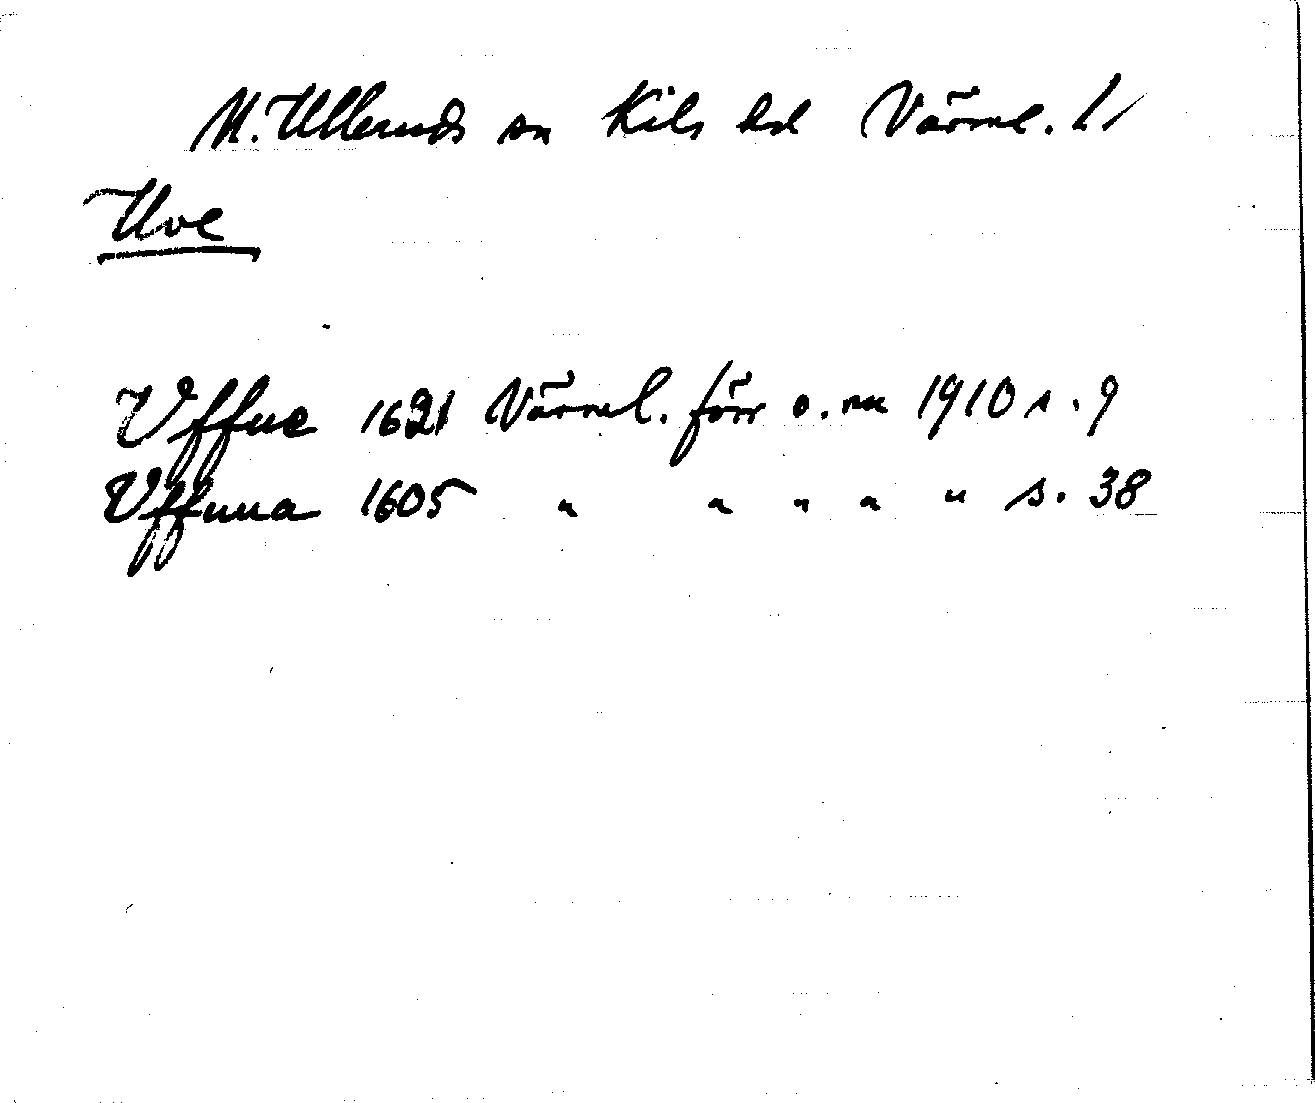 N. Ulleruds sn Kils hd Värml. L.
Uve
Uffue 1621 Värml. förr o. nu 1910 s. 9
Uffuua 1605 " " " " " s. 38